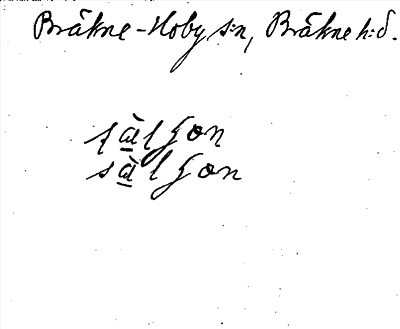 Bräkne-Hoby s:n, Bräkne h:d.
sàlʒon
sàlʒon